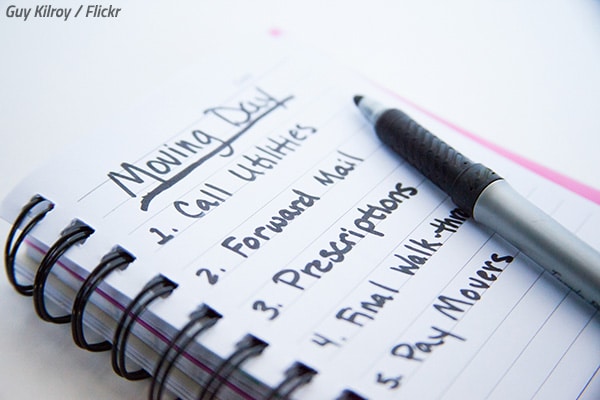 Guy Kilroy / Flickr
Moving Day
1. Call Utilities
2. Forward Mail
3. Prescriptions
4. Final Walk-thro
5. Pay Movers